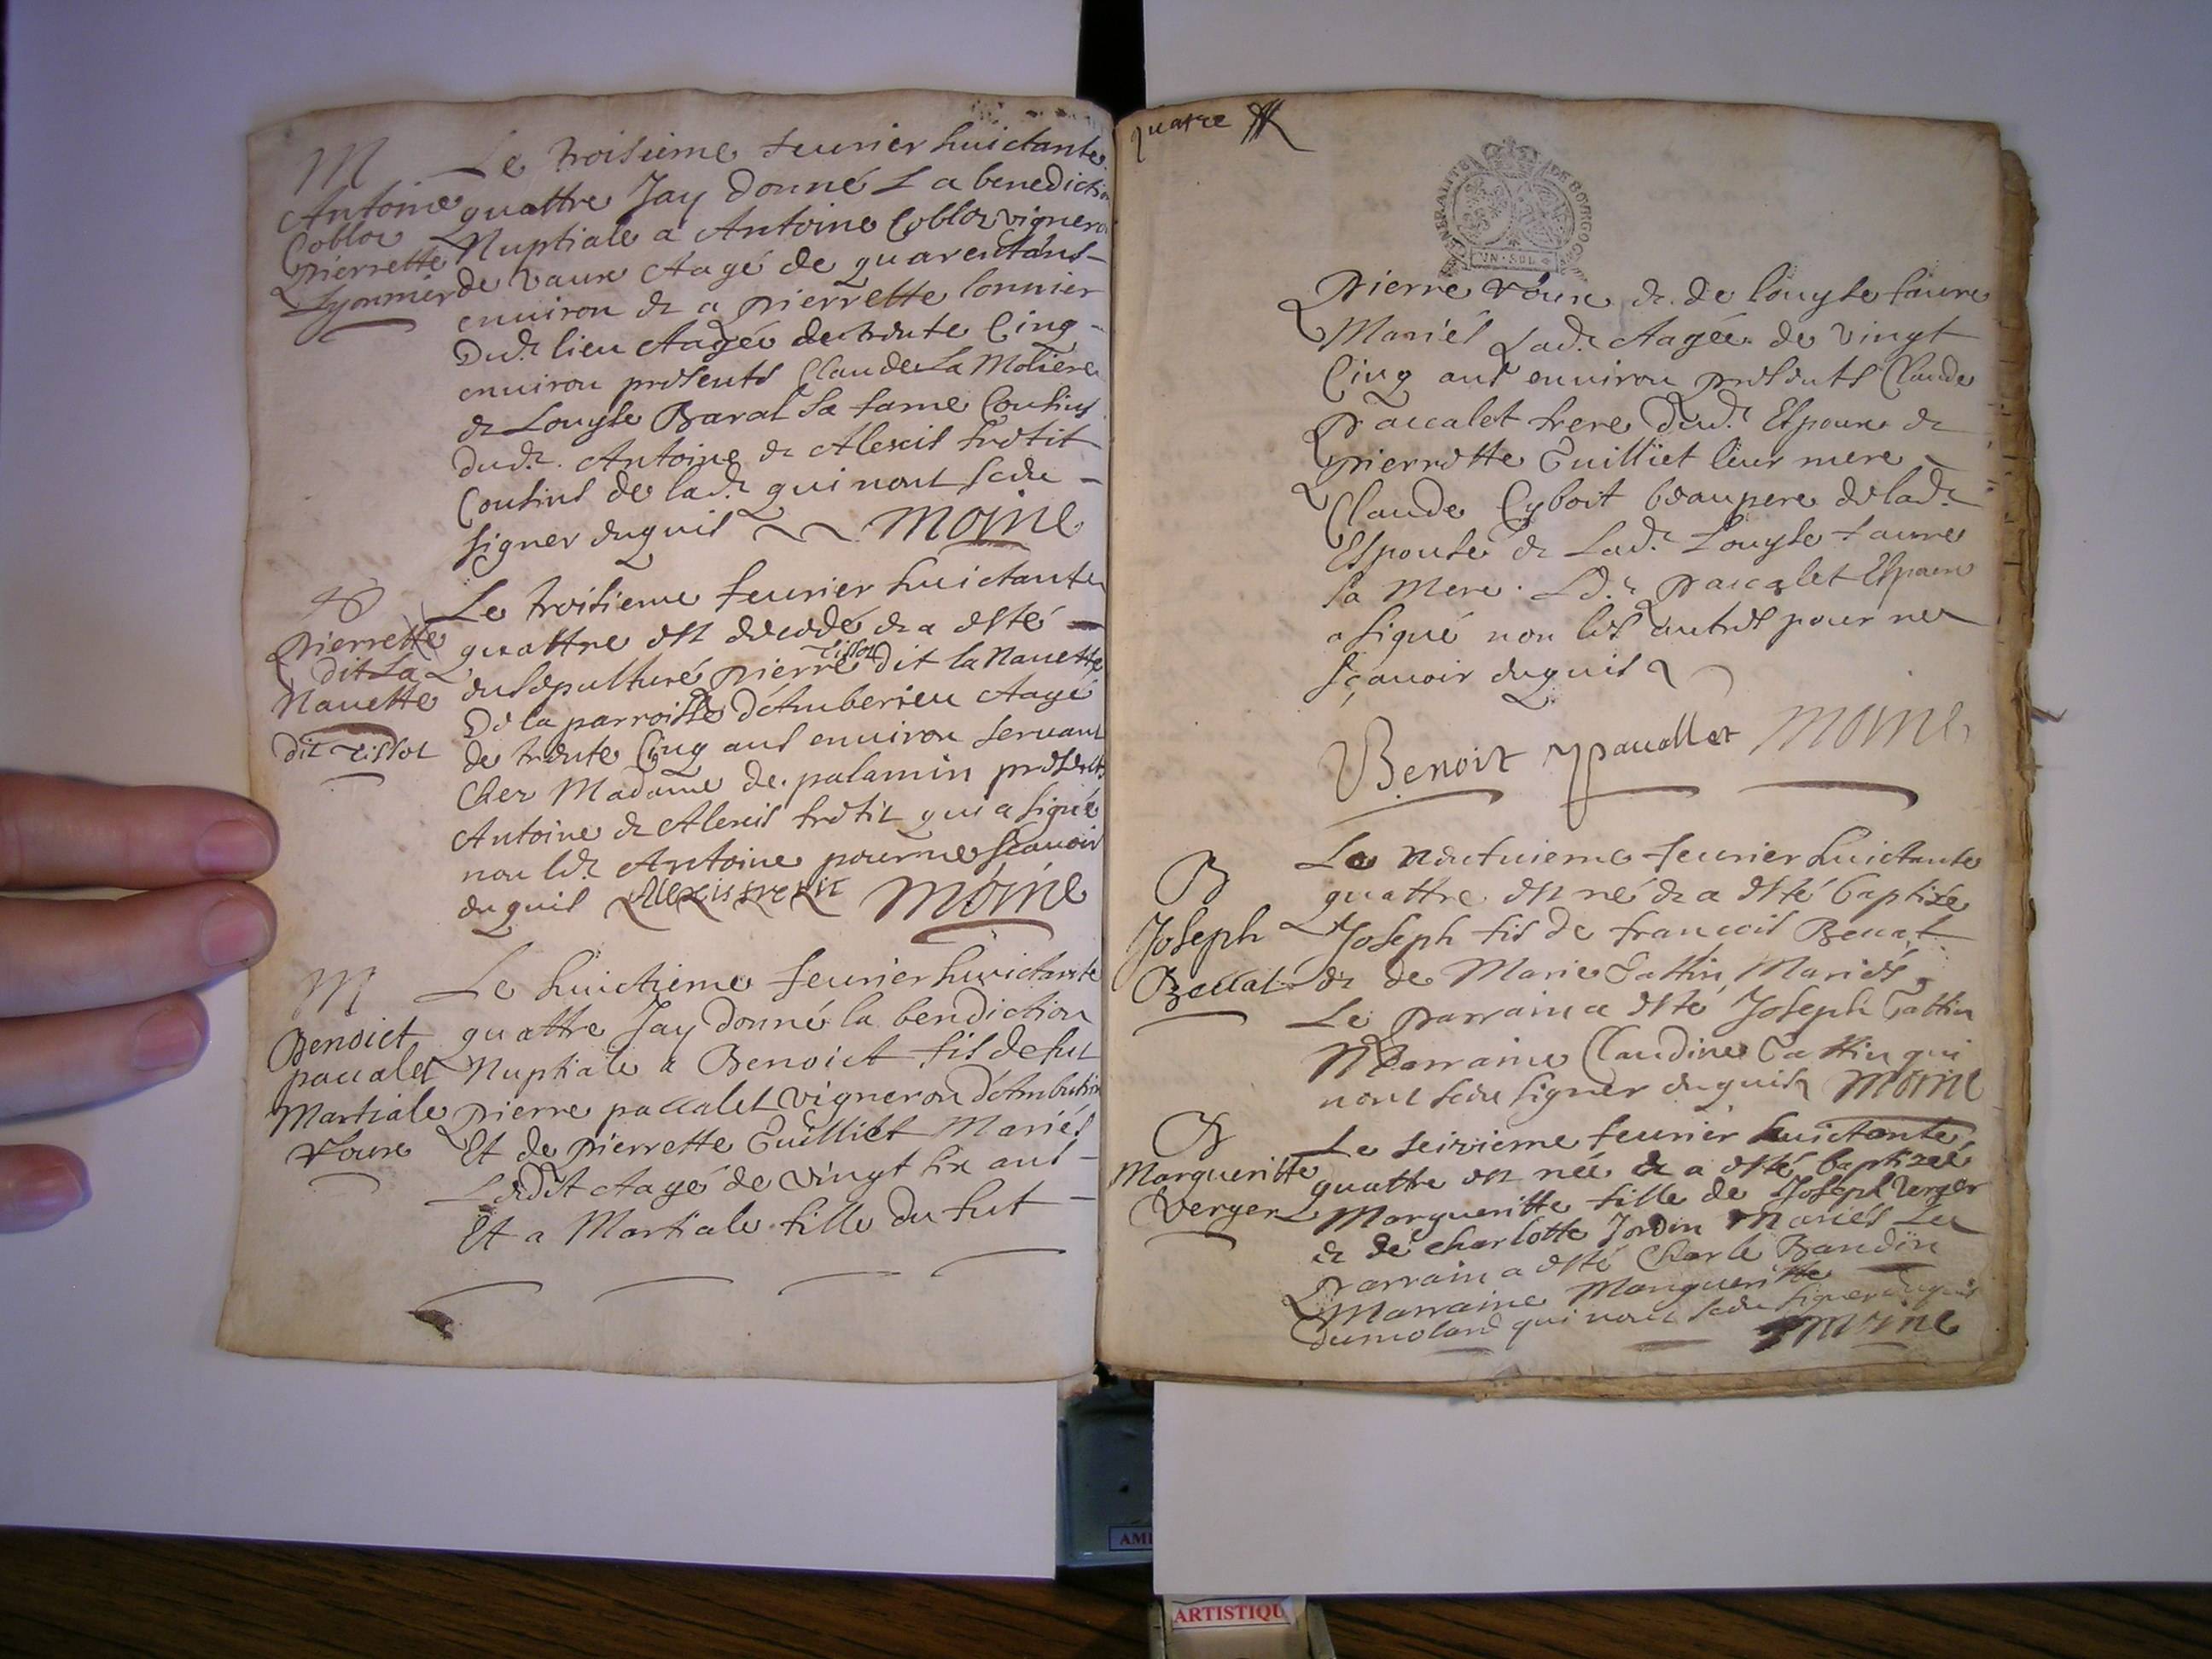 M
Antoine
Cobloz
pierrette
Lyonnier
Le troisieme feurier huictante
quattre Jay donné La benediction
Nuptiale a Antoine Cobloz vigneron
de vaux Aagé de quarent'ans
enuiron & a pierrette lonnier
Dud.t lieu Aagée de trente Cinq
enuiron presents Claude La Moliere
& Louyse Baral sa fame Cousins
dud.t Antoine & Alexis fretit
Cousins de lad.t qui nont sceu
signer enquis Moine
pierrette
dit La
Nauette
dit tissot
Le troisieme feurier huictante
quattre est decedé & a esté
ensepulturé pierre tissot dit la Nauette
De la parroisse d'Amberieu Aagé
de trente Cinq ans enuiron seruant
Chez Madame de palamin presents
Antoine & Alexis fretit qui a signé
non led.t Antoine pour ne scauoir
enquis Alexis fretit Moine
M
Benoict
pacalet
Martiale
roux
Le huictieme feurier huictante
quattre Jay donné la benediction
Nuptiale a Benoict fils de fut
pierre pacalet vigneron d'Ambutrix
Et de pierrette Guilliet Mariés
Ledit Aagé de vingt six ans
Et a Martiale fille du fut
quatre
GENERALITE DE BOURGOGNE
UN · SOL
pierre roux & de louyse faure
Mariés Lad.t Aagée de vingt
Cinq ans enuiron presents Claude
paccalet frere dud.t Espoux &
pierrette Guilliet leur mere
Claude Cyboit beaupere de lad.t
Espouse & Lad.t Louyse faure
sa Mere. Led.t paccalet Espoux
a signé non les autres pour ne
sçauoir enquis
Benoit pacallet Moine
B
Joseph
Beccat
Le Neufuieme feurier huictante
quattre est né & a esté baptize
Joseph fils de francois Beccat
& de Marie Gattin Mariés
Le parrain a esté Joseph Gattin
Marraine Claudine Gattin qui
nont sceu signer enquis Moine
B
Margueritte
Verger
Le seizieme feurier huictante
quattre est née & a esté baptizée
Margueritte fille de Joseph Verger
& de charlotte Jordin Mariés Le
parrain a esté Charle Baudin
Marraine Margueritte
Dumolard qui nont sceu signer enquis
Moine
AMI
ARTISTIQU